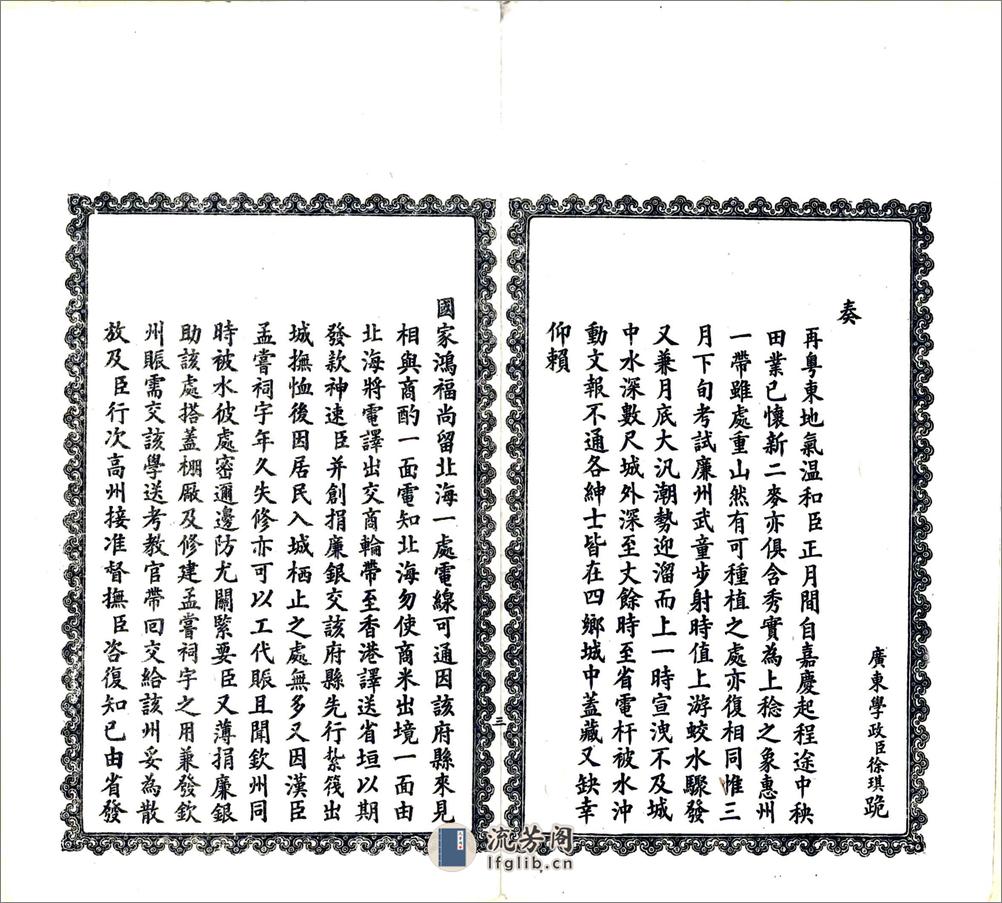 廣東學政臣徐琪跪
奏
再粤東地氣温和臣正月間自嘉慶起程途中秧
田業已懷新二麥亦俱含秀實為上稔之象惠州
一帶雖處重山然有可種植之處亦復相同惟三
月下旬考試廉州武童步射時值上游蛟水驟發
又兼月底大汎潮勢迎溜而上一時宣洩不及城
中水深數尺城外深至丈餘時至省電杆被水沖
動文報不通各紳士皆在四鄉城中蓋藏又缺幸
仰賴
國家鴻福尚留北海一處電線可通因該府縣來見
相與商酌一面電知北海勿使商米出境一面由
北海將電譯出交商輪帶至香港譯送省垣以期
發款神速臣并創捐廉銀交該府縣先行紮筏出
城撫恤後因居民入城栖止之處無多又因漢臣
孟嘗祠宇年久失修亦可以工代賑且聞欽州同
時被水彼處密邇邊防尤關緊要臣又薄捐廉銀
助該處搭蓋棚厰及修建孟嘗祠宇之用兼發欽
州賑需交該學送考教官帶回交給該州妥為散
放及臣行次高州接准督撫臣咨復知已由省發
三
流芳阁
lfglib.cn